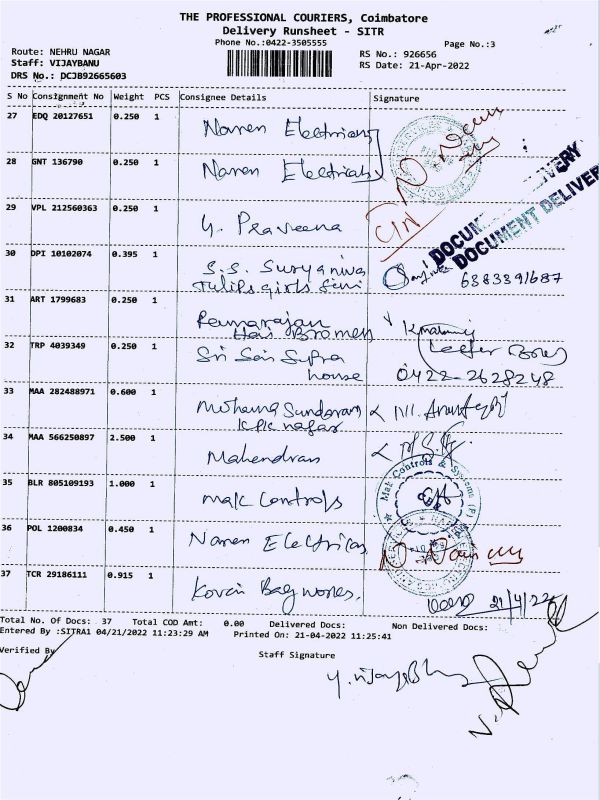 THE PROFESSIONAL COURIERS, Coimbatore
Delivery Runsheet - SITR
Phone No.:0422-3505555
Page No.:3
Route: NEHRU NAGAR
Staff: VIJAYBANU
DRS No.: DCJB92665603
RS No.: 926656
RS Date: 21-Apr-2022
S No Consignment No Weight PCS Consignee Details Signature
27 EDQ 20127651 0.250 1 Naren Electricals
28 GNT 136790 0.250 1 Naren Electricals
29 VPL 212560363 0.250 1 Y. Praveena
DOCUMENT DELIVERY
30 DPI 10102074 0.395 1 S.S. Suryaniva
Tulips girls 6383391687
31 ART 1799683 0.250 1 Ramarajan
32 TRP 4039349 0.250 1 Sri Sai Supra
house 0422-2628248
33 MAA 282488971 0.600 1 Mohana Sundaram
KPK nagar
34 MAA 566250897 2.500 1 Mahendran
35 BLR 805109193 1.000 1 Mak Controls
Mak Controls & Systems (P)
36 POL 1200834 0.450 1 Naren Electricals
37 TCR 29186111 0.915 1 Kovai Bag works. 21/4/22
Total No. Of Docs: 37 Total COD Amt: 0.00 Delivered Docs: Non Delivered Docs:
Entered By :SITRA1 04/21/2022 11:23:29 AM Printed On: 21-04-2022 11:25:41
Verified By Staff Signature